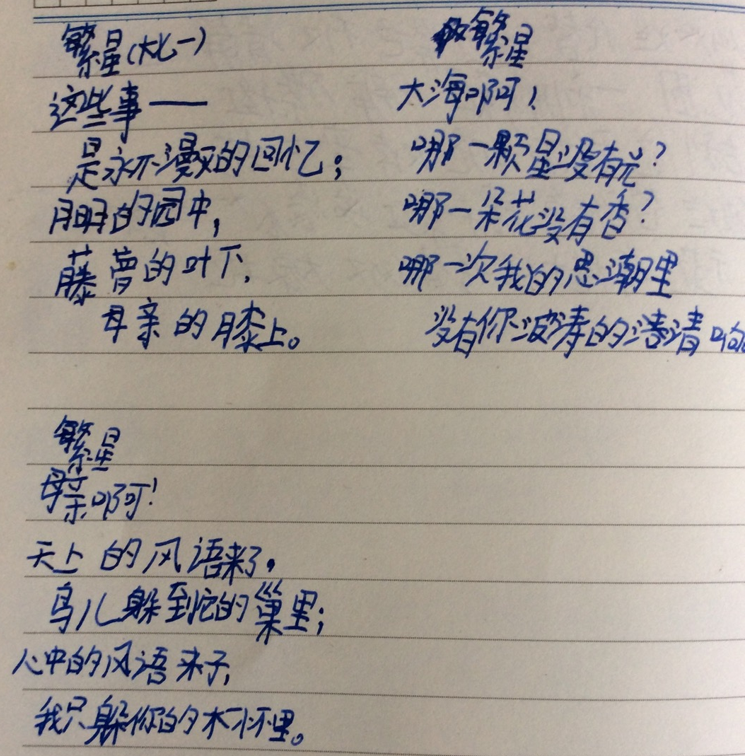 繁星(大化一)
这些事——
是永不漫灭的回忆；
月明的园中，
藤萝的叶下，
母亲的膝上。
繁星
大海啊！
哪一颗星没有光？
哪一朵花没有香？
哪一次我的思潮里
没有你波涛的清响
繁星
母亲啊！
天上的风语来了。
鸟儿躲到它的巢里；
心中的风语来了，
我只躲你的怀里。